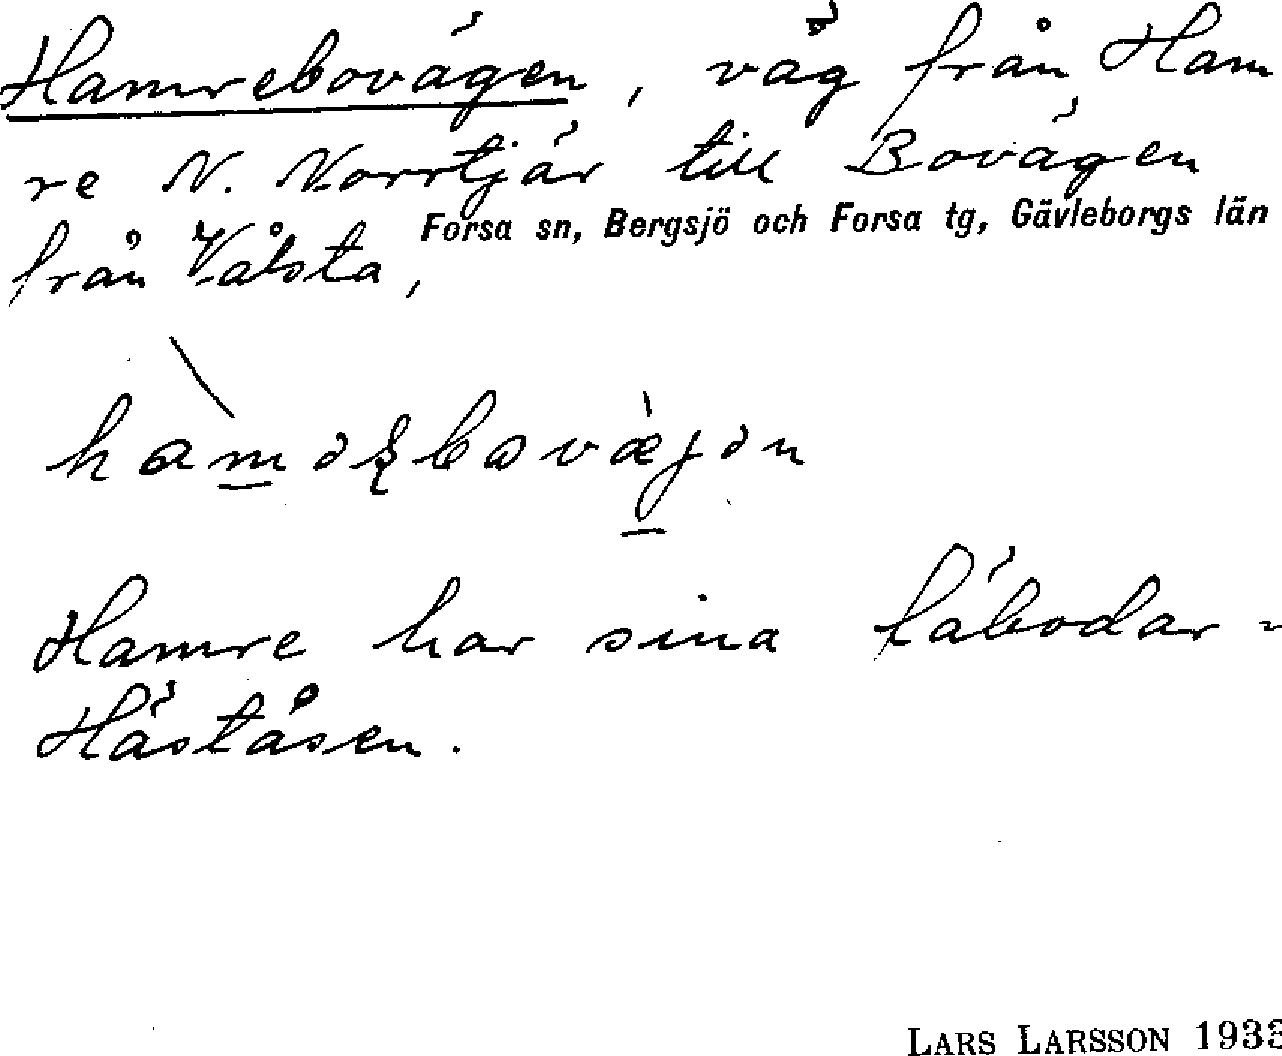 Hamrebovägen, väg från Ham
re N. Norrtjär till Bovägen
från Vålsta,
Forsa sn, Bergsjö och Forsa tg, Gävleborgs län
Hamre har sina fäbodar -
Håståsen.
LARS LARSSON 1933